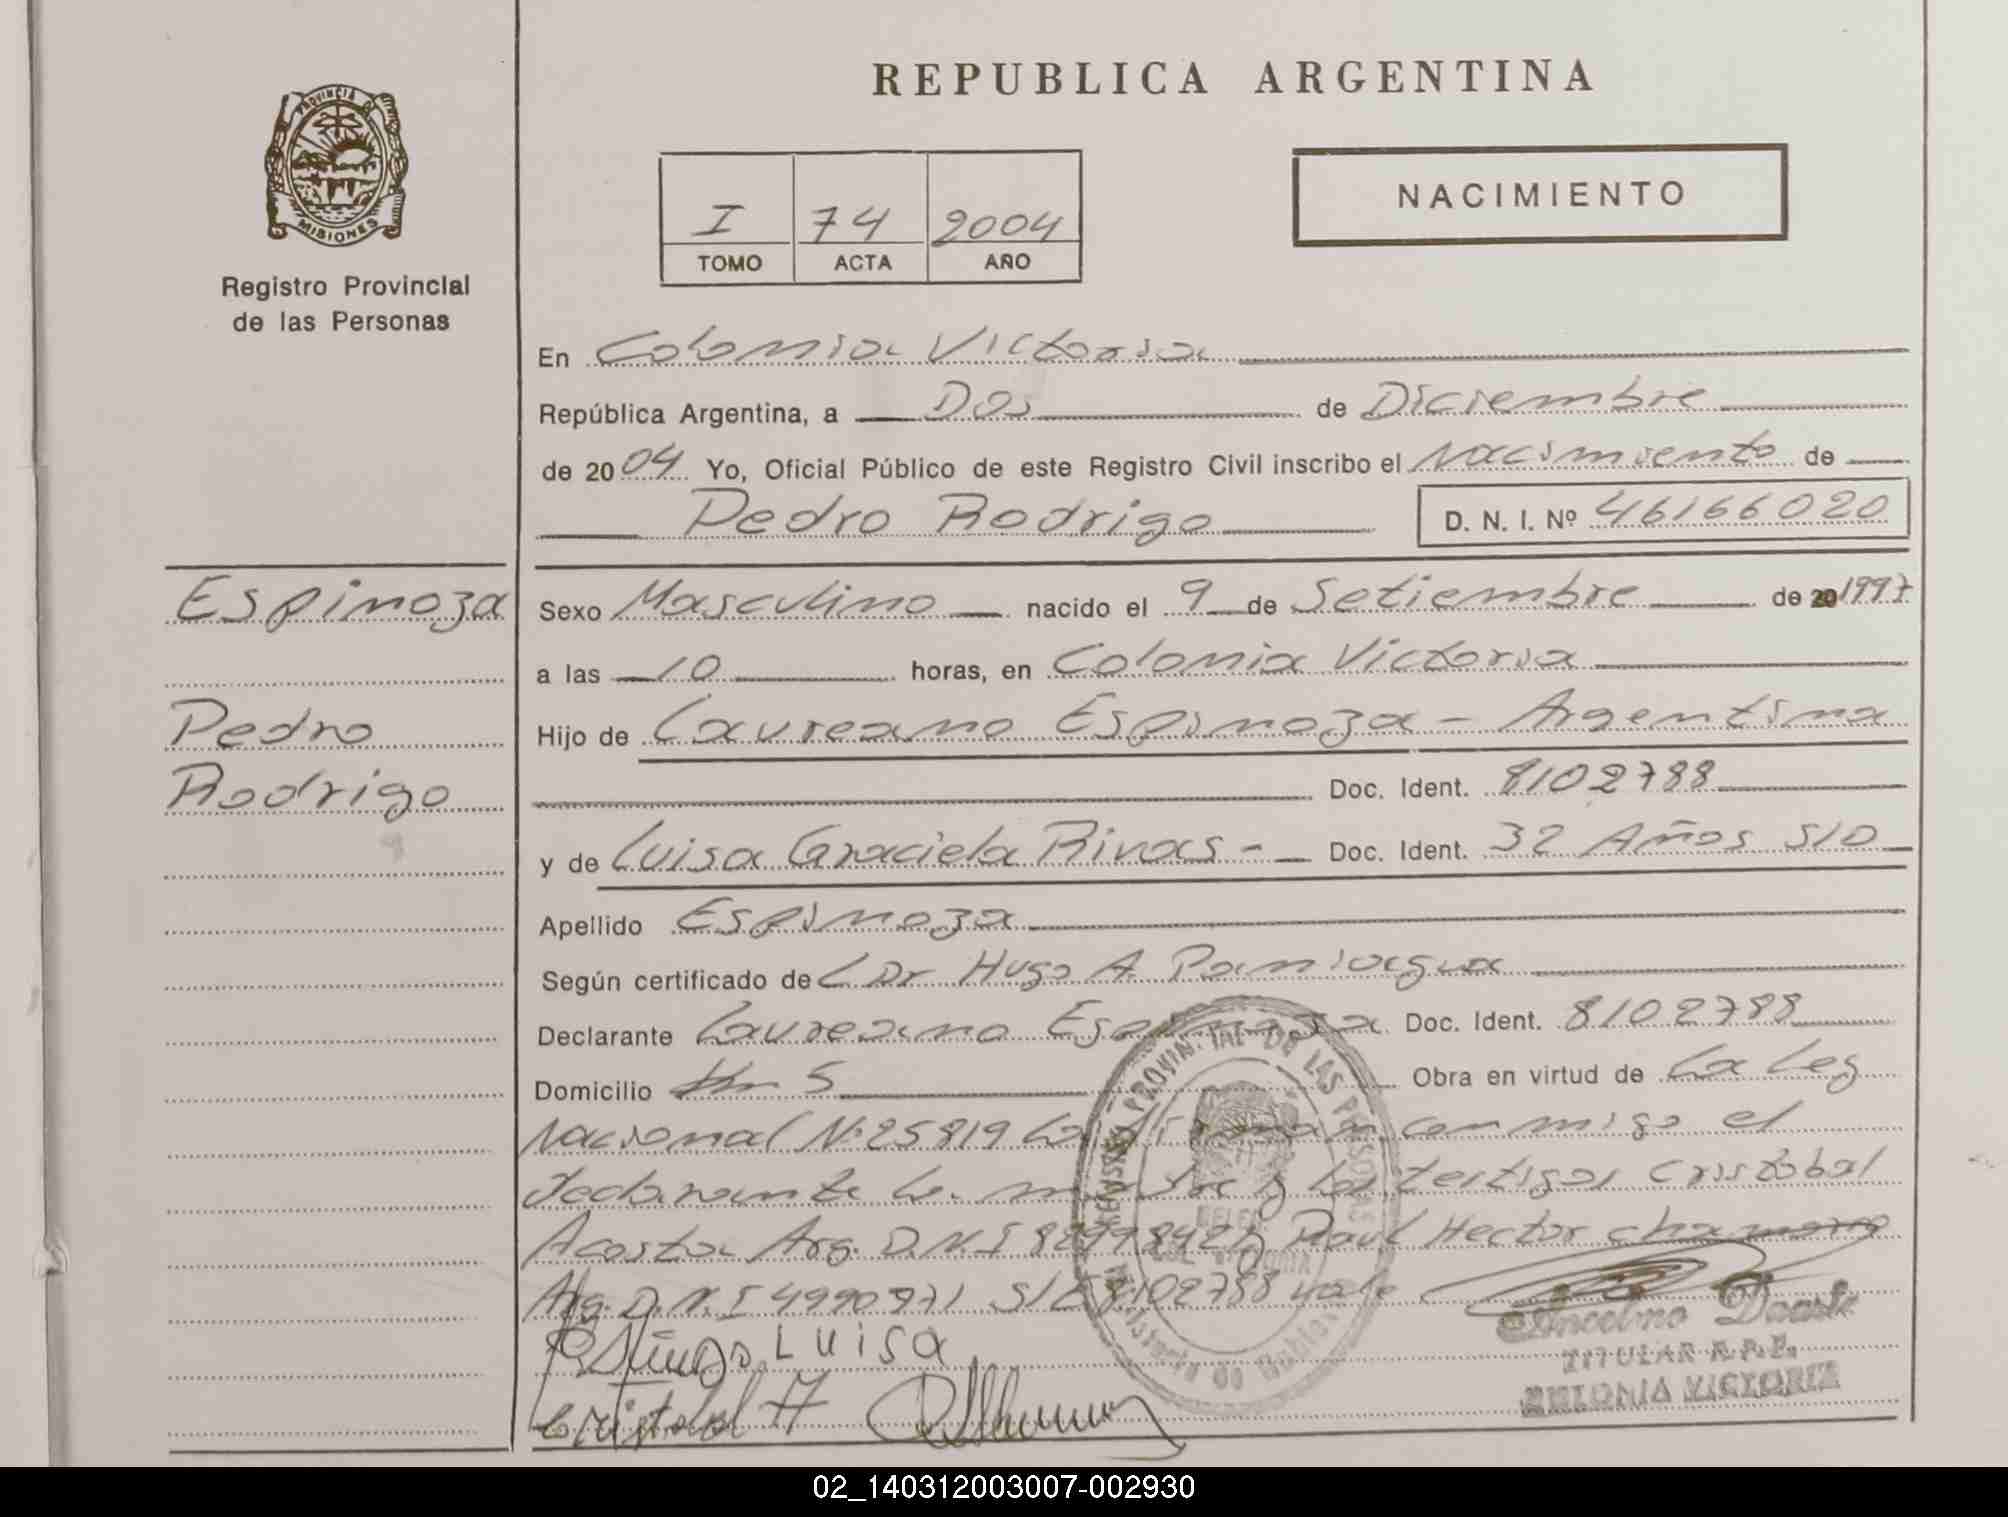 REPUBLICA ARGENTINA
PROVINCIA DE
MISIONES
Registro Provincial
de las Personas
I 74 2004
TOMO ACTA AÑO
NACIMIENTO
En Colonia Victoria
República Argentina, a Dos de Diciembre
de 2004 Yo, Oficial Público de este Registro Civil inscribo el Nacimiento de
Pedro Rodrigo D. N. I. Nº 46166020
Espinoza
Pedro
Rodrigo
Sexo Masculino nacido el 9 de Setiembre de 20 1997
a las 10 horas, en Colonia Victoria
Hijo de Laureano Espinoza - Argentina
Doc. Ident. 8102788
y de Luisa Graciela Rivas - Doc. Ident. 32 Años S/D
Apellido Espinoza
Según certificado de L Dr Hugo A. Paniagua
Declarante Laureano Espinoza Doc. Ident. 8102788
Domicilio Km 5 Obra en virtud de La Ley
Nacional Nº 25819 conmigo el
declarante la madre y los testigos Cristobal
Acosta Arg. D.N.I y Raul Hector chamorro
Arg. D.N.I 4990971 S/E 8102788 vale
Luisa
Cristobal A
PROVINCIAL DE LAS PERSONAS
Anselmo Duarte
TITULAR R.P.P.
COLONIA VICTORIA
02_140312003007-002930